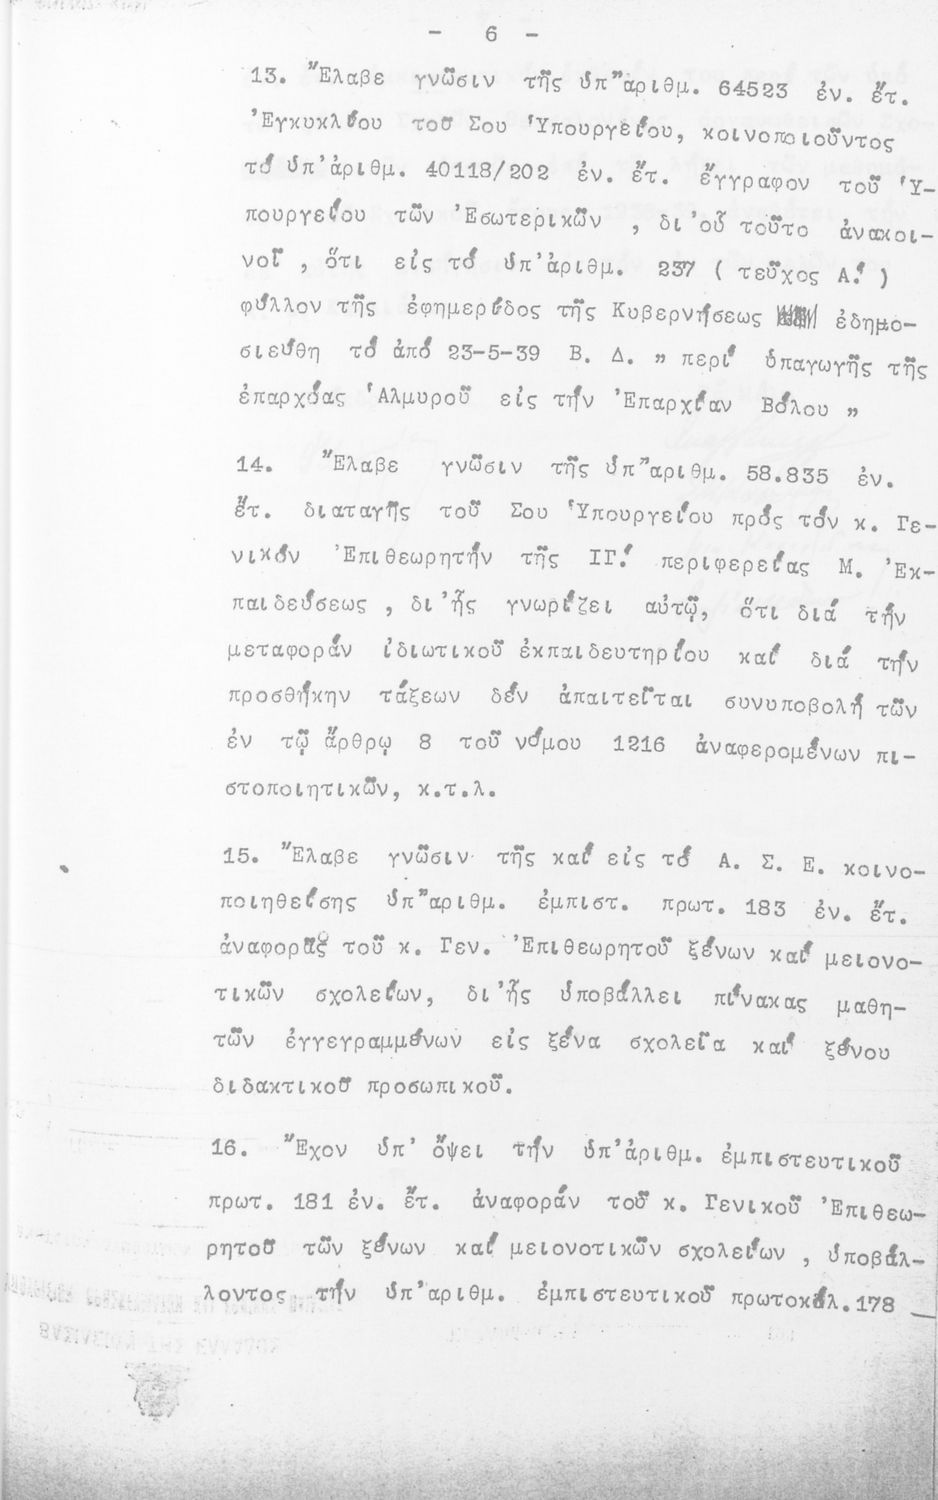 - 6 -
13. Ἔλαβε γνῶσιν τῆς ὑπ" ἀριθμ. 64523 ἐν. ἔτ.
Ἐγκυκλίου τοῦ Σου Ὑπουργείου, κοινοποιοῦντος
τό ὑπ' ἀριθμ. 40118/202 ἐν. ἔτ. ἔγγραφον τοῦ Ὑ-
πουργείου τῶν Ἐσωτερικῶν , δι' οὗ τοῦτο ἀνακοι-
νοῖ , ὅτι εἰς τό ὑπ' ἀριθμ. 237 ( τεῦχος Α! )
φύλλον τῆς ἐφημερίδος τῆς Κυβερνήσεως ἐδημο-
σιεύθη τό ἀπό 23-5-39 Β. Δ. " περί ὑπαγωγῆς τῆς
ἐπαρχίας Ἁλμυροῦ εἰς τήν Ἐπαρχίαν Βόλου "
14. Ἔλαβε γνῶσιν τῆς ὑπ" ἀριθμ. 58.835 ἐν.
ἔτ. διαταγῆς τοῦ Σου Ὑπουργείου πρός τόν κ. Γε-
νικόν Ἐπιθεωρητήν τῆς ΙΓ! περιφερείας Μ. Ἐκ-
παιδεύσεως , δι' ἧς γνωρίζει αὐτῷ, ὅτι διά τήν
μεταφοράν ἰδιωτικοῦ ἐκπαιδευτηρίου καί διά τήν
προσθήκην τάξεων δέν ἀπαιτεῖται συνυποβολή τῶν
ἐν τῷ ἄρθρῳ 8 τοῦ νόμου 1216 ἀναφερομένων πι-
στοποιητικῶν, κ.τ.λ.
15. Ἔλαβε γνῶσιν τῆς καί εἰς τό Α. Σ. Ε. κοινο-
ποιηθείσης ὑπ" ἀριθμ. ἐμπιστ. πρωτ. 183 ἐν. ἔτ.
ἀναφορᾶς τοῦ κ. Γεν. Ἐπιθεωρητοῦ ξένων καί μειονο-
τικῶν σχολείων, δι' ἧς ὑποβάλλει πίνακας μαθη-
τῶν ἐγγεγραμμένων εἰς ξένα σχολεῖα καί ξένου
διδακτικοῦ προσωπικοῦ.
16. Ἔχον ὑπ' ὄψει τήν ὑπ' ἀριθμ. ἐμπιστευτικοῦ
πρωτ. 181 ἐν. ἔτ. ἀναφοράν τοῦ κ. Γενικοῦ Ἐπιθεω-
ρητοῦ τῶν ξένων καί μειονοτικῶν σχολείων , ὑποβάλ-
λοντος τήν ὑπ' ἀριθμ. ἐμπιστευτικοῦ πρωτοκόλ. 178